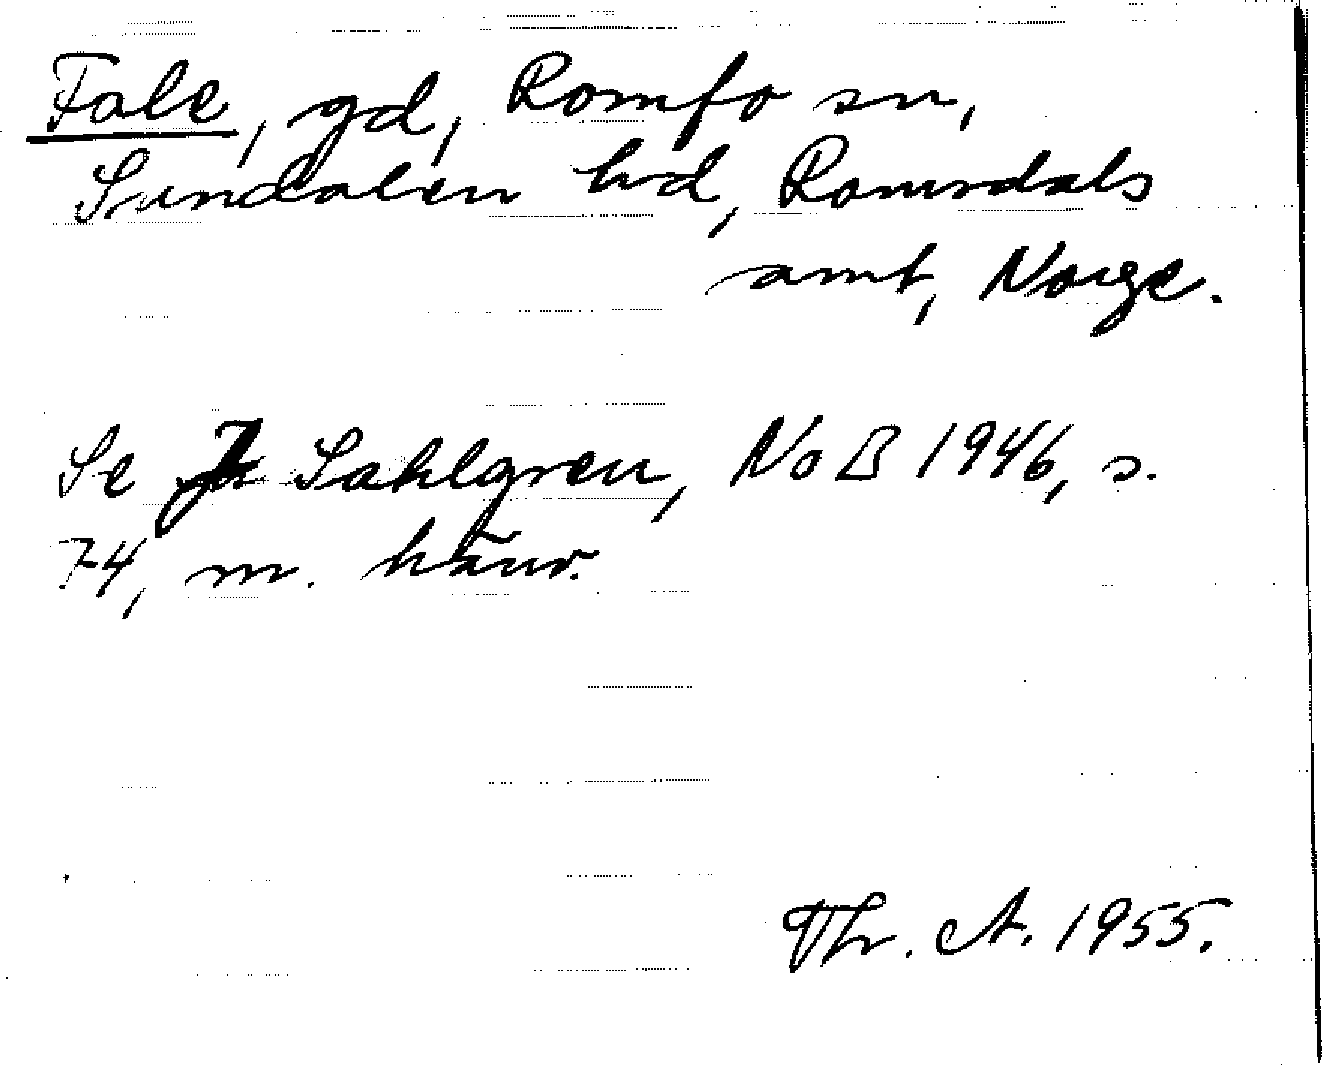 Fale, gd, Romfo sn,
Sundalen hd, Romsdals
amt, Norge.
Se J. Sahlgren, NoB 1946, s.
74, m. hänv.
Thr. A. 1955.